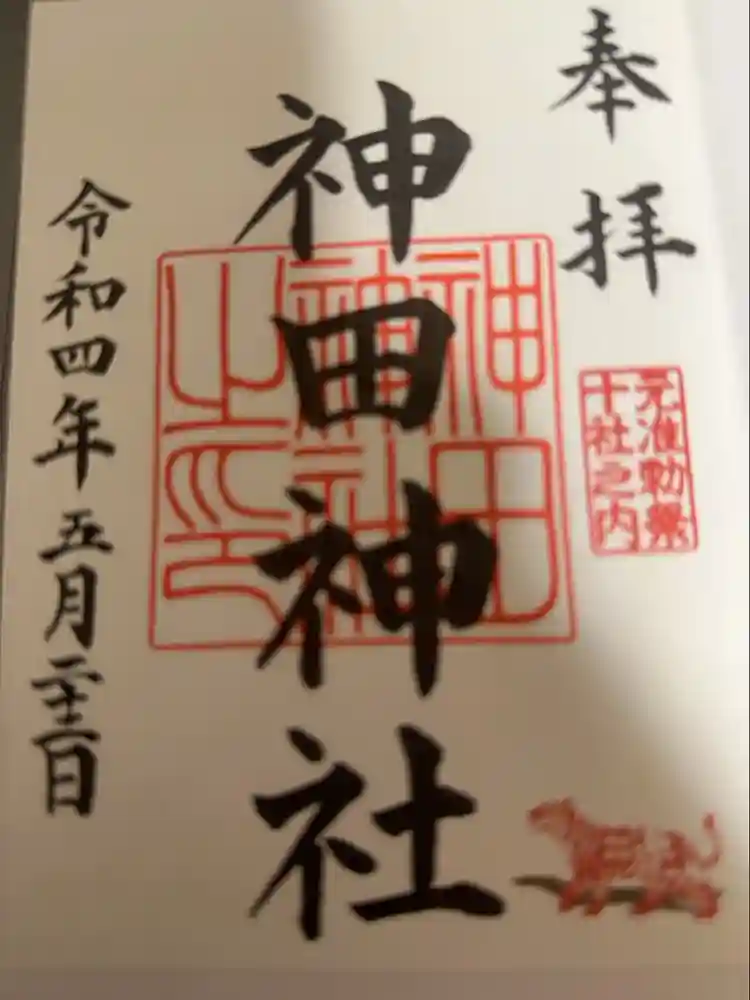 奉拝
元准勅祭
十社之内
神田神社
神田
神社
之印
令和四年五月二十二日